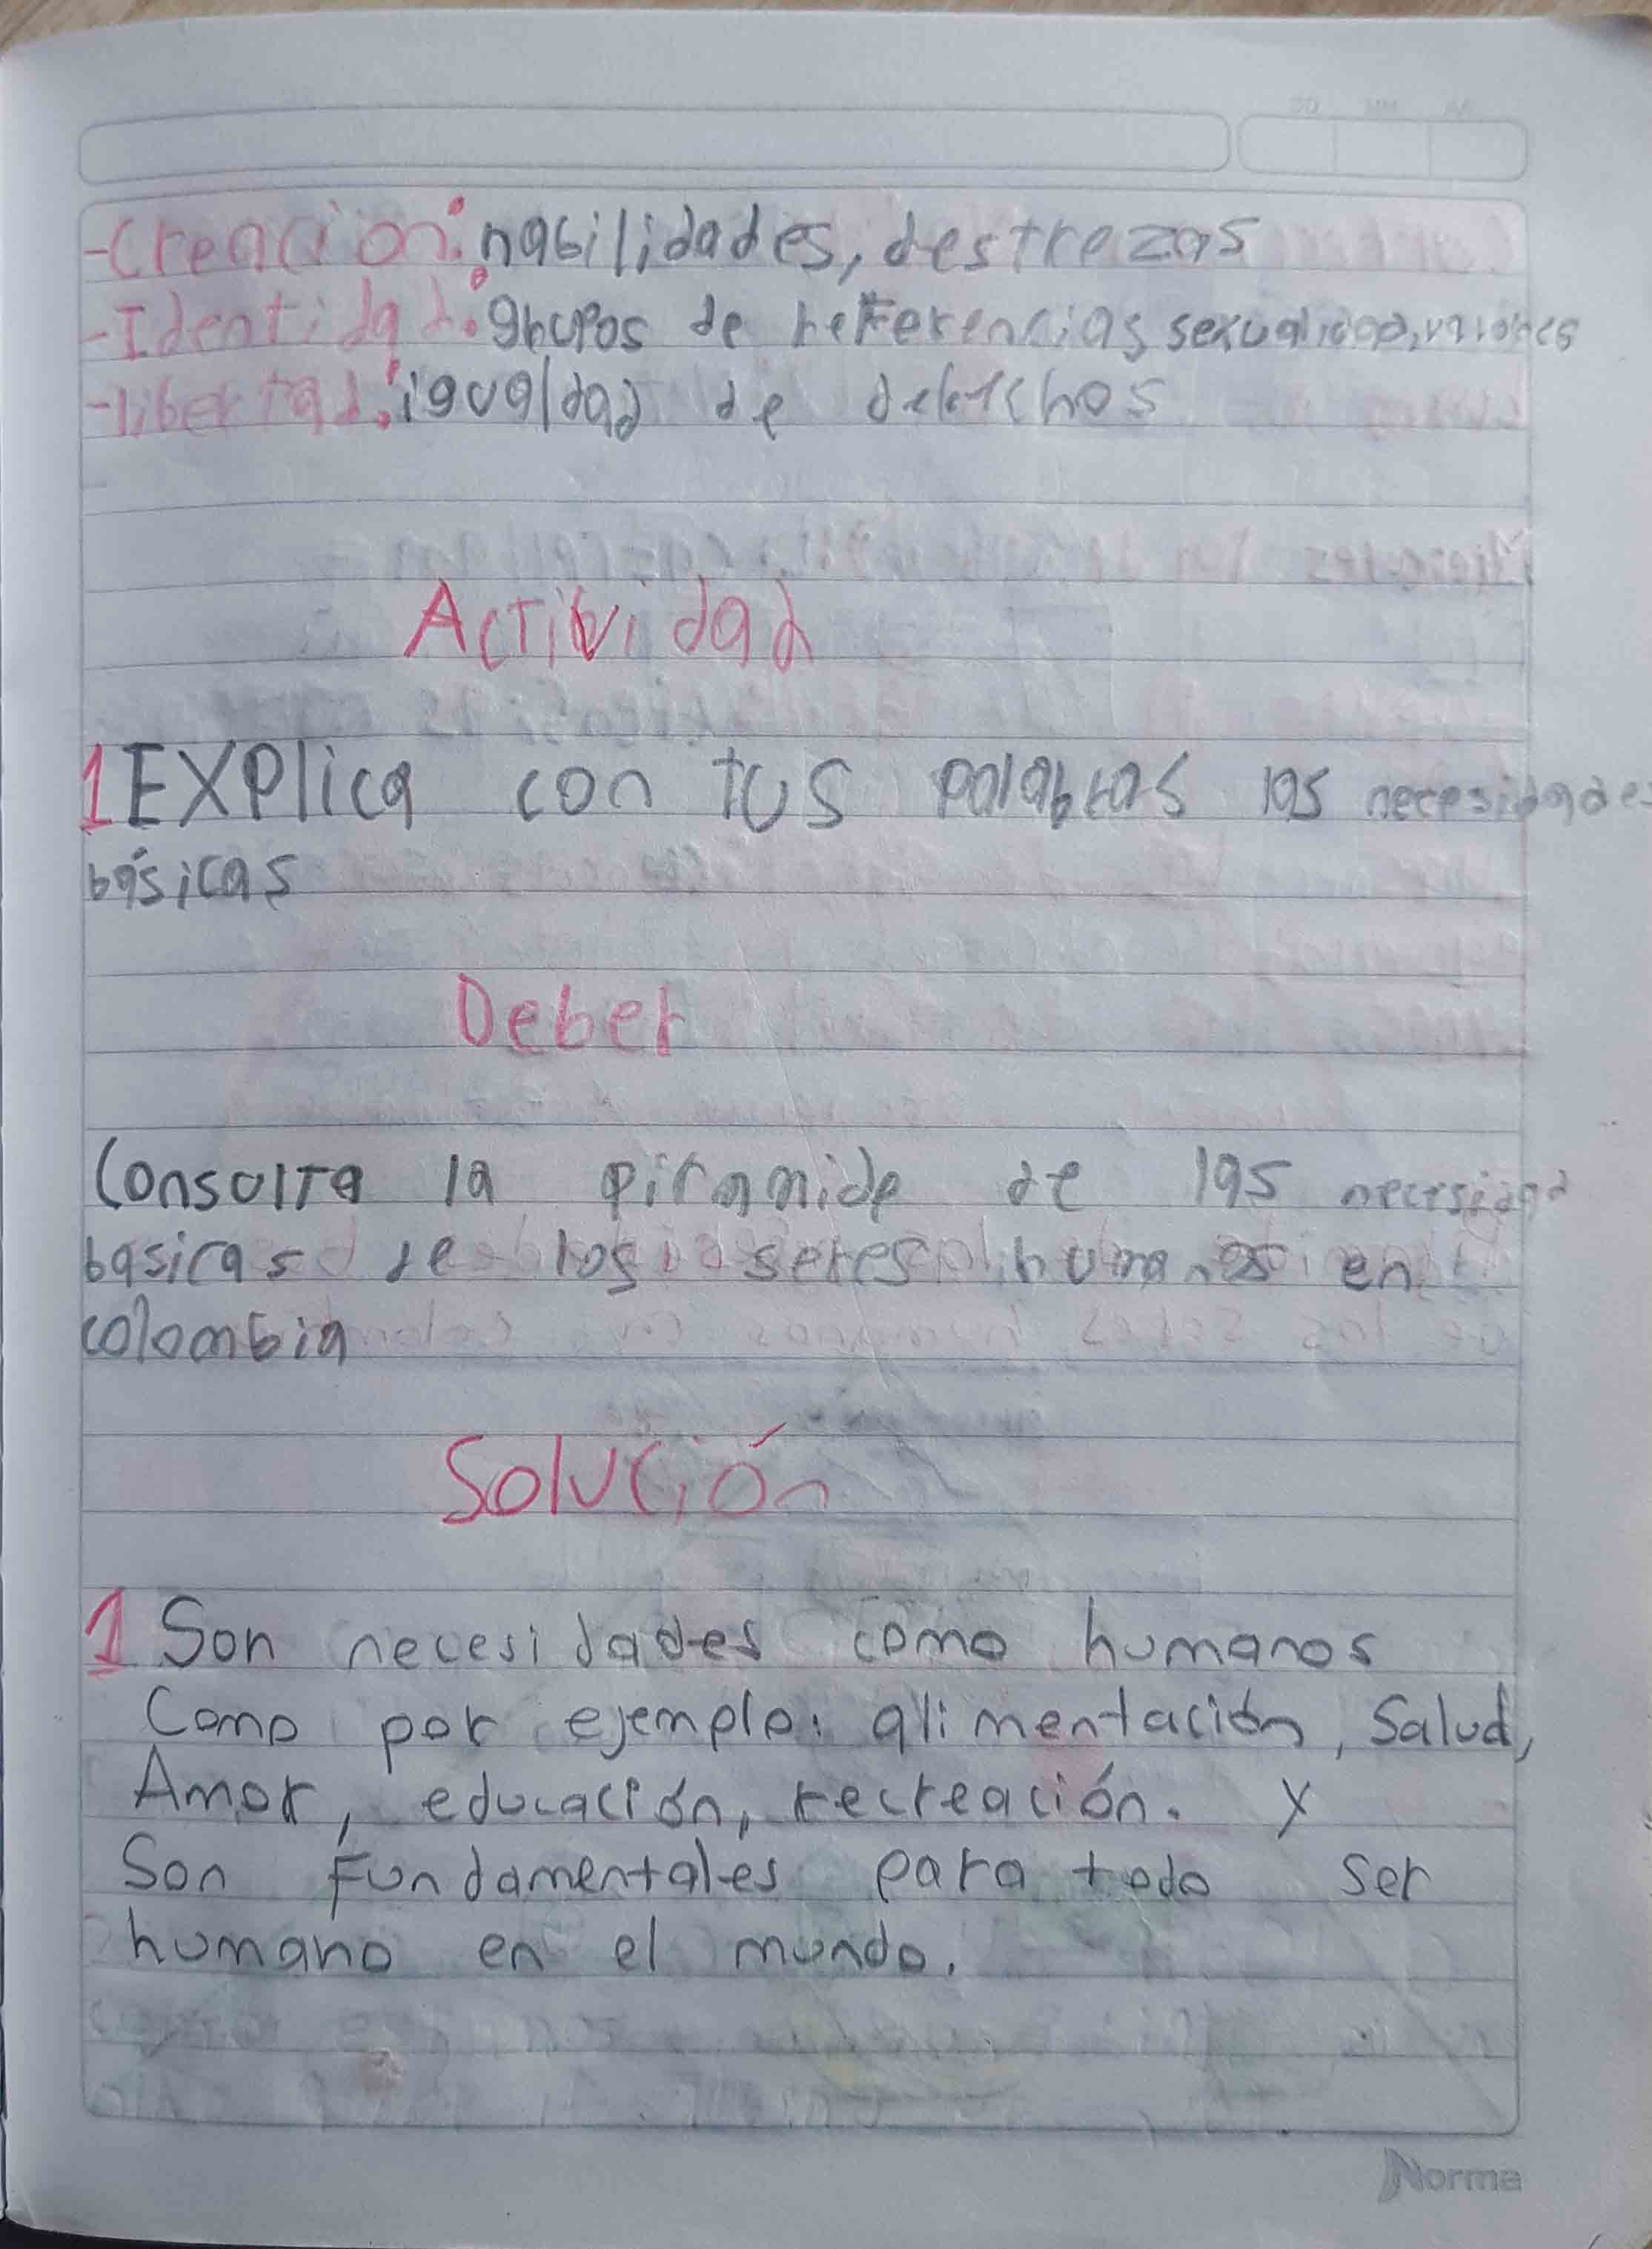 -Creación: habilidades, destrezas
-Identidad: grupos de referencias, sexualidad, valores
-libertad: igualdad de derechos
Actividad
1 EXPlica con tus palabras las necesidades
básicas
Deber
Consulta la piramide de las necesidad
basicas de los seres humanos en
colombia
Solución
1 Son necesidades como humanos
Como por ejemplo: alimentación, Salud,
Amor, educación, recreación. y
Son Fundamentales para todo ser
humano en el mundo.
Norma